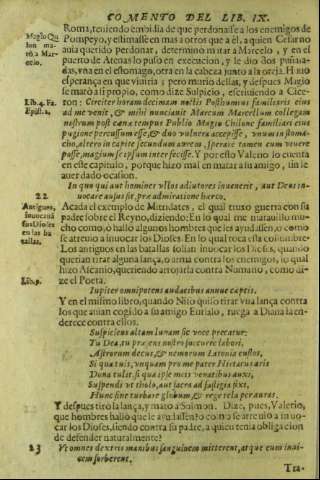 COMENTO DEL LIB. IX.
Roma, teniendo embidia de que perdonasse a los enemigos de
Pompeyo, y estimasse en mas a otros que a èl, a quien Cesar no
auia querido perdonar, determinò matar a Marcelo, y en el
puerto de Atenas lo puso en execucion, y le dio dos puñala-
das, vna en el estomago, otra en la cabeça junto a la oreja. Huuo
esperança en que viuiria; pero murio dellas, y despues Magio
se matò a si propio, como dize Sulpicio, escriuiendo a Cice-
ron: Circiter horam decimam noctis Posthumius familiaris eius
ad me venit, & mihi nunciauit Marcum Marcellum collegam
nostrum post cænæ tempus Publio Magio Chilone familiari eius
pugione percussum esse, & duo vulnera accepisse, vnum in stoma-
cho, altero in capite secundum aurem, sperare tamen eum viuere
posse, magium se ipsum interfecisse. Y por esto Valerio lo cuenta
en este capitulo, porque hizo mal en matar a su amigo, sin le
auer dado ocasion.
Magio Chi
lon ma-
tò a Mar-
celo.
Lib. 4. Fa.
Epist. 12.
In quo qui aut homines vllos adiutores inuenerit, aut Deus in-
uocare ausus sit, præ admiratione hæreo.
22
Antiguos,
inuocauã
sus Dioses
en las ba
tallas.
Acada el exemplo de Mitridates, el qual truxo guerra con su
padre sobre el Reyno, diziendo: En lo qual me marauillo mu-
cho como, o hallò algunos hombres que les ayudassen, o como
se atreuio a inuocar los Dioses. En lo qual toca esta costumbre
Los antiguos en las batallas solian inuocar los Dioses, quando
querian tirar alguna lança, o arma contra los enemigos, lo qual
hizo Ascanio, queriendo arrojarla contra Numano, como di-
ze el Poeta.
Lib. 9.
Iupiter omnipotens audacibus annue cœptis.
Y en el mismo libro, quando Niso quiso tirar vna lança contra
los que auian cogido a su amigo Eurialo, ruega a Diana la en-
derece contra ellos.
Suspiciens altam lunam sic voce precatur:
Tu Dea, tu præsens nostro succurre labori,
Astrorum decus, & nemorum Latonia custos,
Si qua tuis, vnquam pro me pater Hirtacus aris
Dona tulit, si qua ipse meis venatibus auxi,
Suspendi ve tholo, aut sacra ad fastigia fixi,
Hunc sine turbare globum, & rege tela per auras.
Y despues tirò la lança, y matò a Sulmon. Dize, pues, Valerio,
que hombres hallò que le ayudassen? o como se atreuio a inuo-
car los Dioses, siendo contra su padre, a quien tenia obligacion
de defender naturalmente?
23
Vt omnes dextris manibus sanguinem mitterent, atque eum inui-
cem sorberent.
Tra-